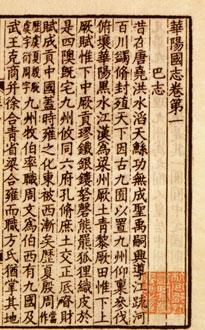 華陽國志卷第一
巴志
昔在唐堯洪水滔天鯀功無成聖禹嗣興導江疏河
百川蠲修封殖天下因古九囿以置九州仰稟參伐
俯壤華陽黑水江漢為梁州厥土青黎厥田惟下上
厥賦惟下中厥貢璆鐵銀鏤砮磬熊羆狐狸織皮於
是四隩既宅九州攸同六府孔修庶土交正厎慎財
賦成貢中國蓋時雍之化東被西漸矣歷夏殷周
九州牧伯率職周文為伯西有九國及
武王克商并徐合青省梁合雍而職方氏猶掌其地